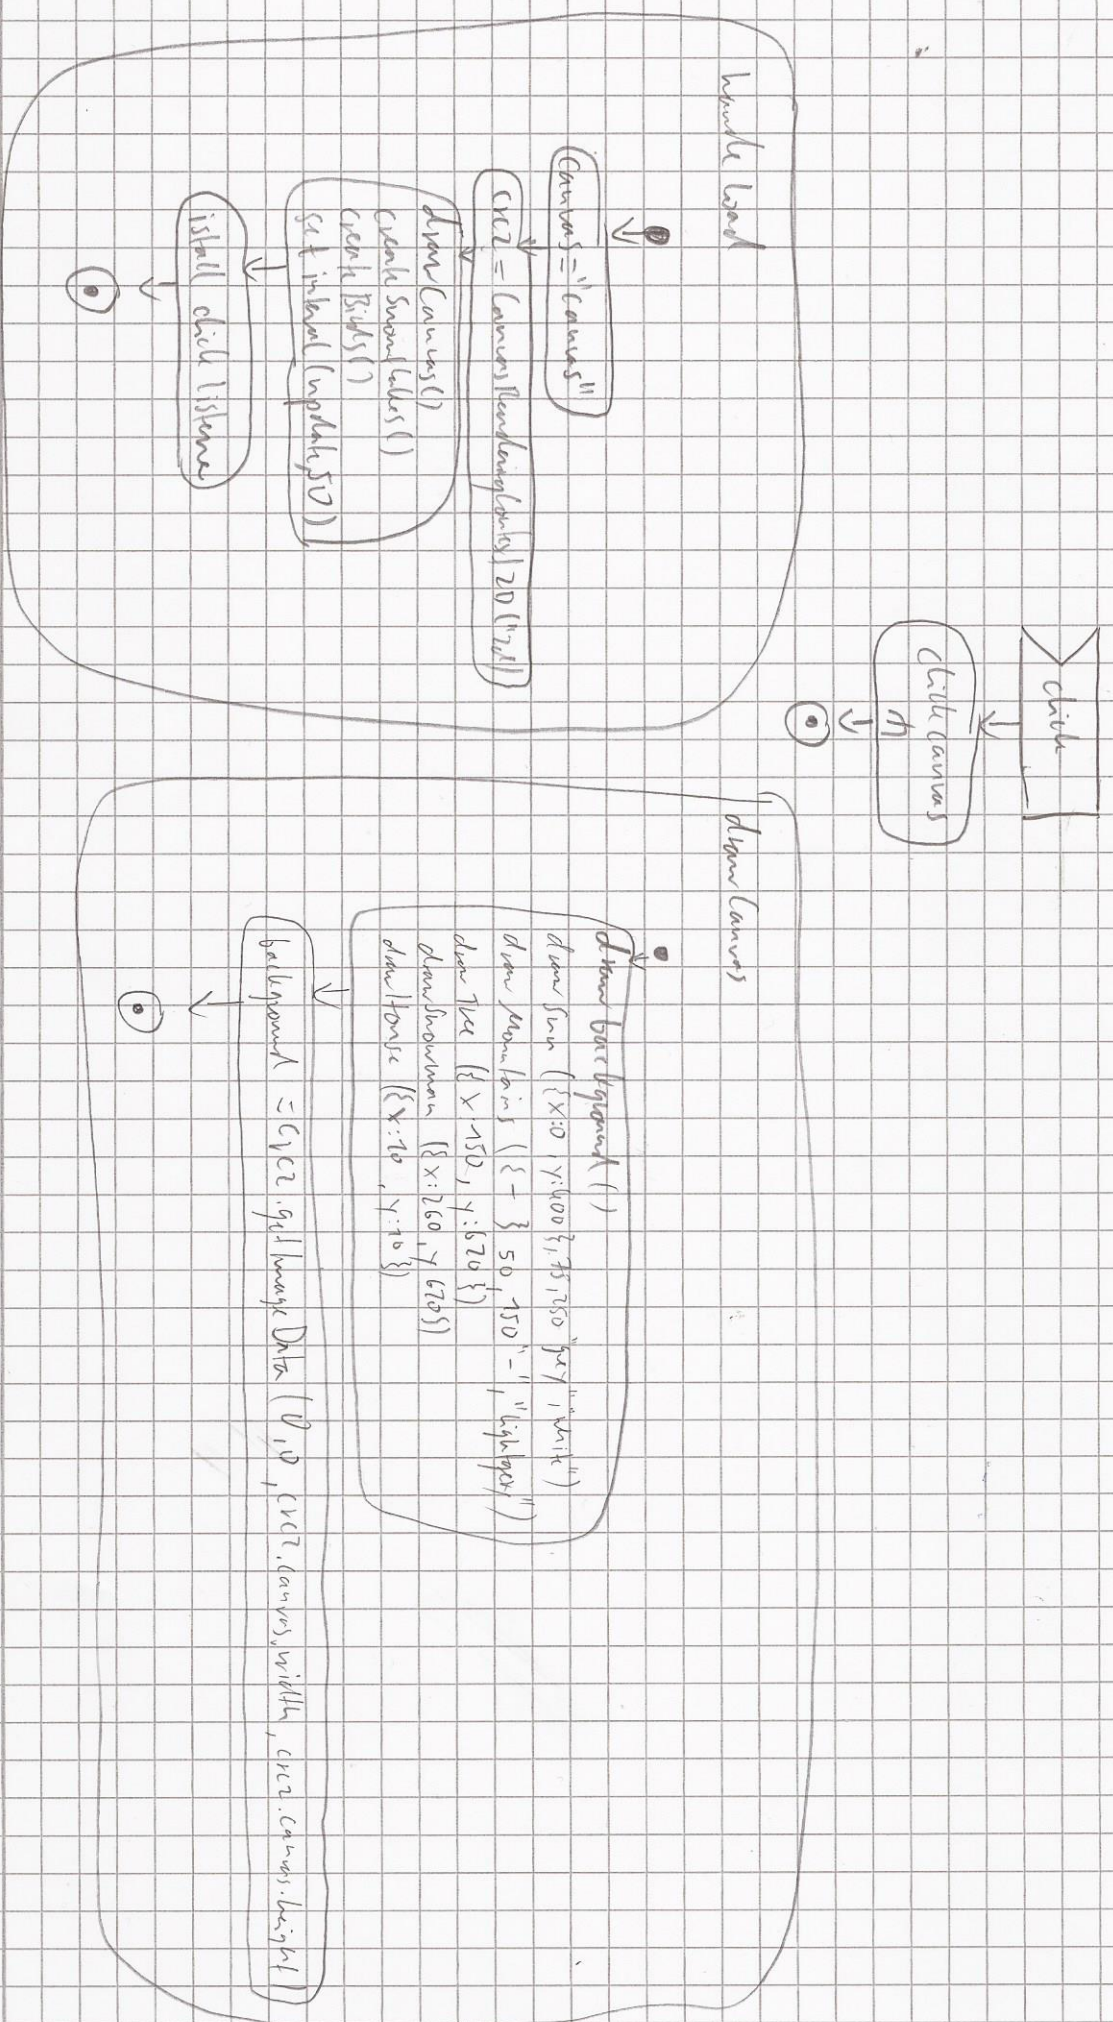 click
click canvas
handle load
canvas = "canvas"
crc2 = CanvasRendering 2D ("2d")
draw Canvas()
create Snowflakes()
create Birds()
set interval (update,50)
istall click listener
draw Canvas
draw background ()
draw Sun ({x:0, y:400}, 75, 250 "grey", "white")
draw Mountains ({-} 50, 150 "-", "lightgrey")
draw Tree ({x:150, y:620})
draw Snowman ({x:260, y 620})
draw House ({x:10, y:10})
background = crc2.getImageData (0,0, crc2.canvas.width, crc2.canvas.height)